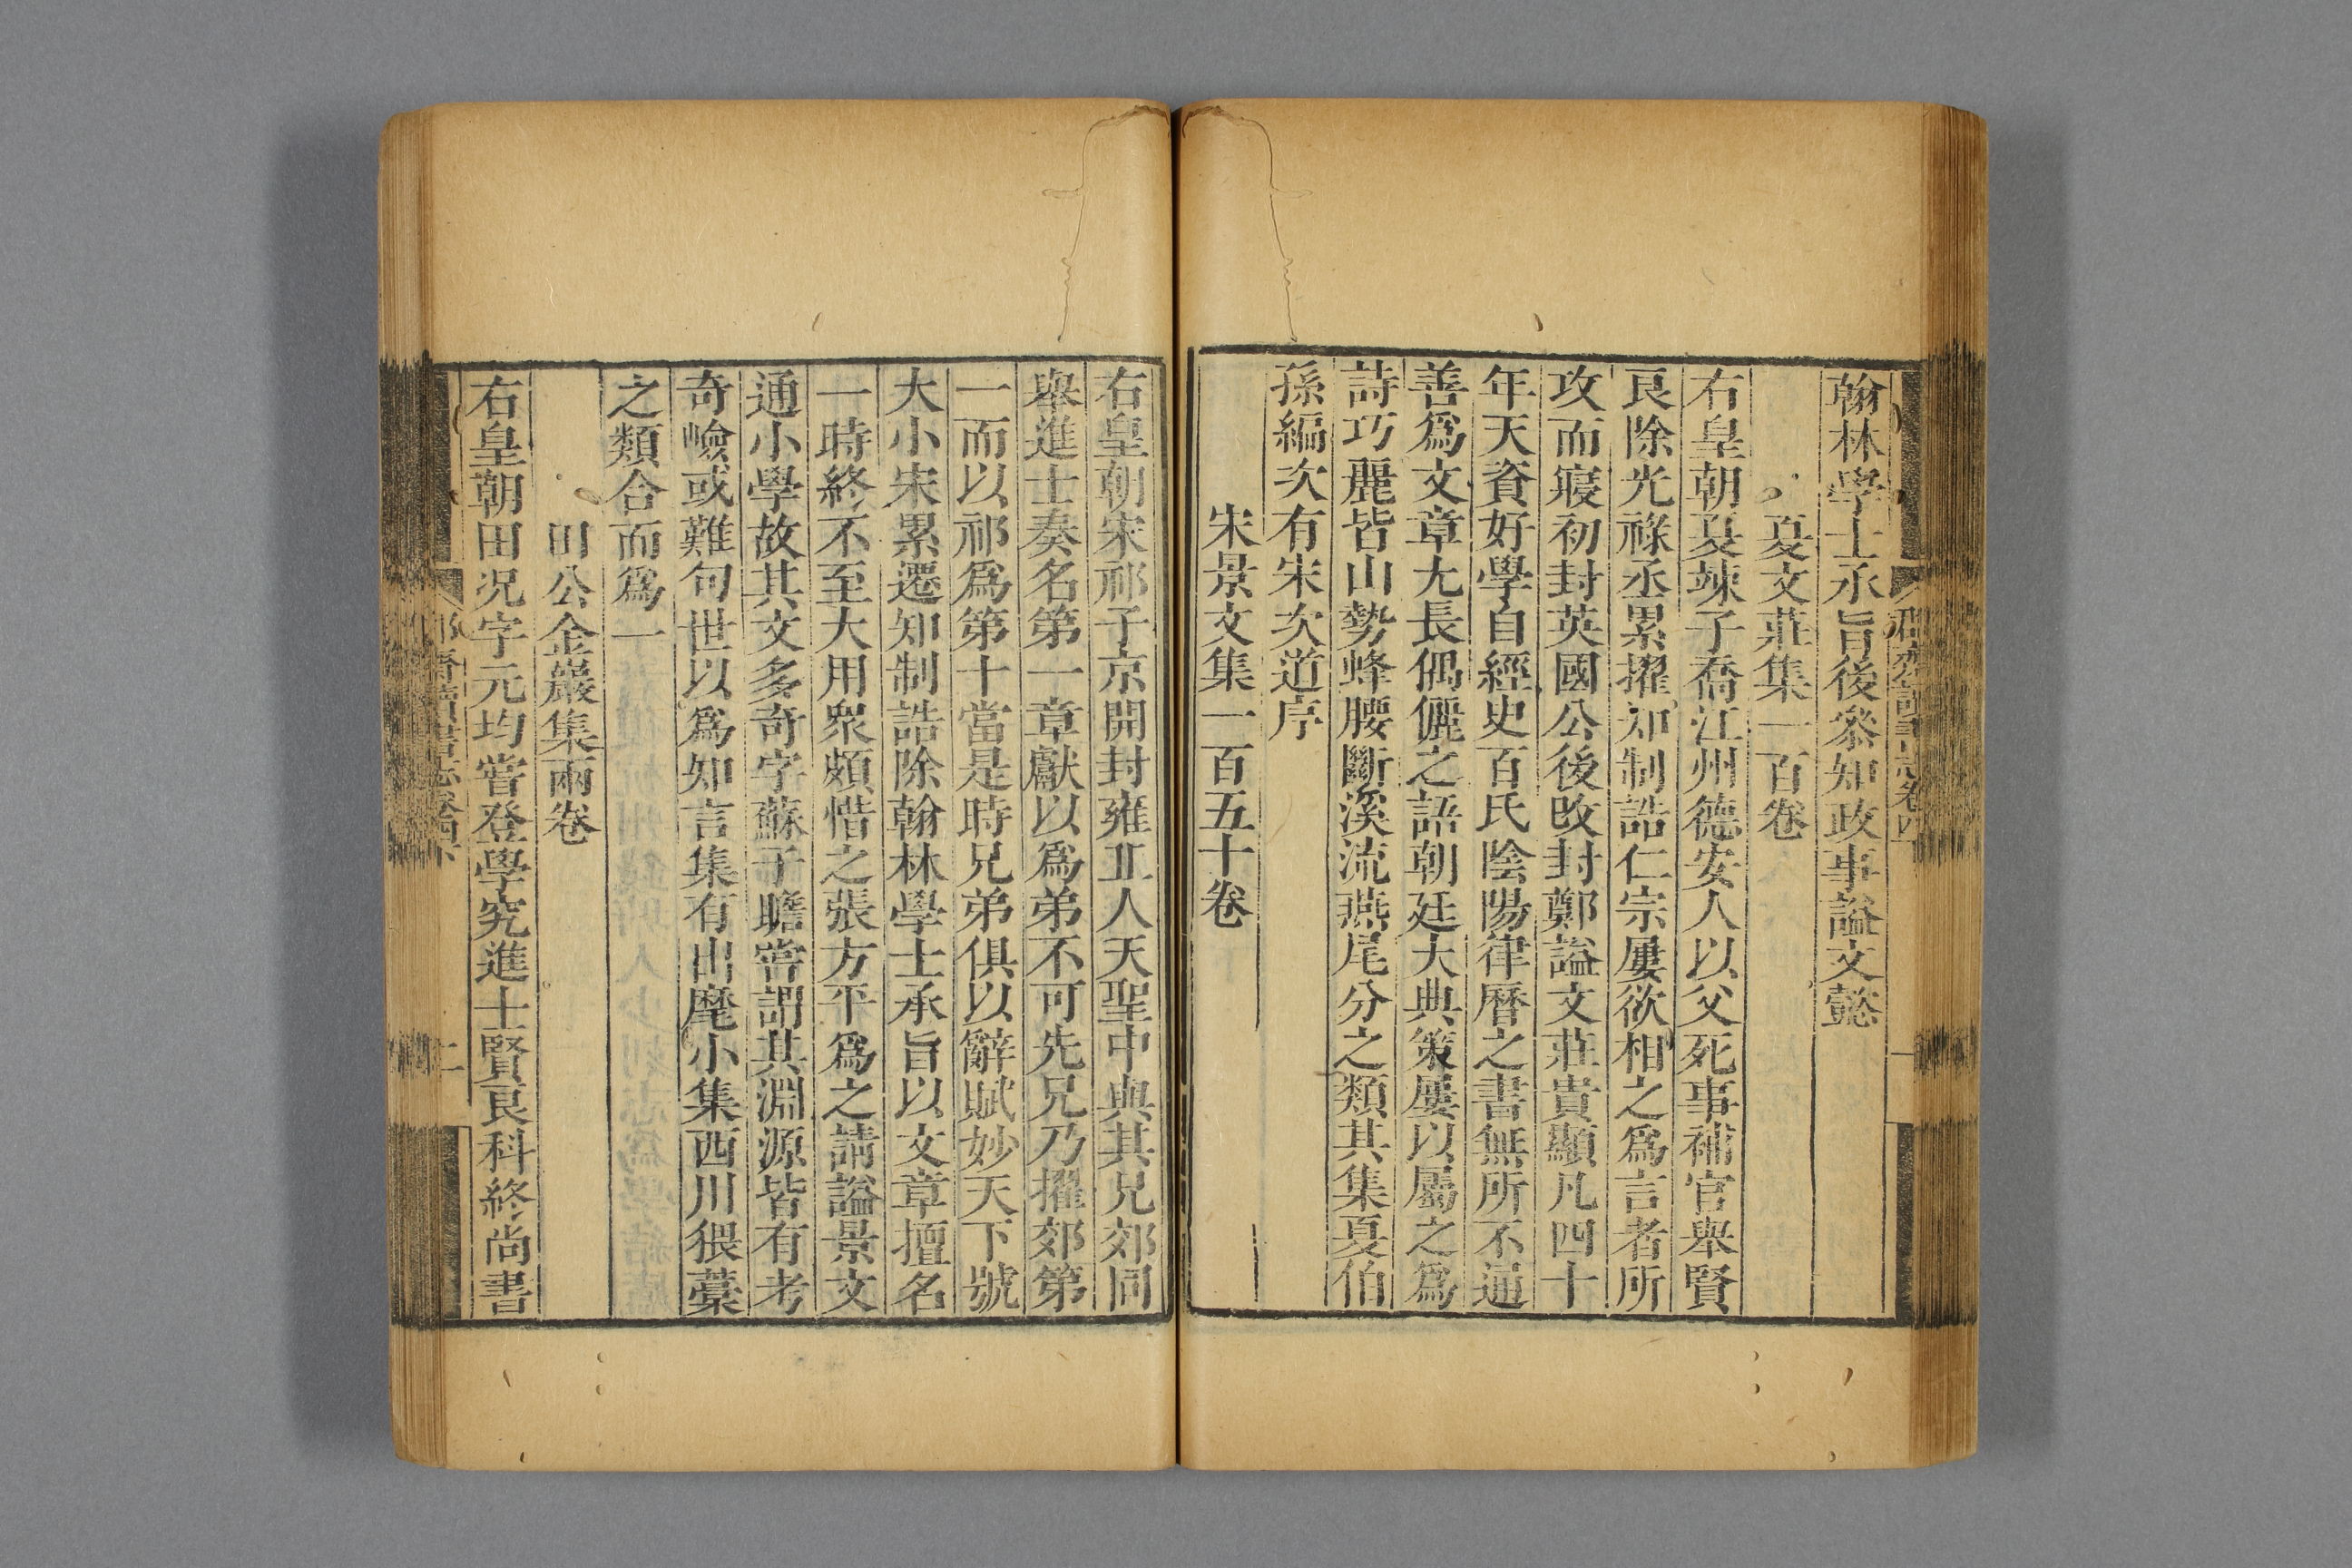 翰林學士承旨後叅知政事謚文懿
夏文莊集一百卷
右皇朝夏竦子喬江州德安人以父死事補官舉賢
良除光祿丞累擢知制誥仁宗屢欲相之爲言者所
攻而寢初封英國公後改封鄭謚文莊貴顯凡四十
年天資好學自經史百氏陰陽律曆之書無所不通
善爲文章尤長偶儷之語朝廷大典策屢以屬之爲
詩巧麗皆山勢蜂腰斷溪流燕尾分之類其集夏伯
孫編次有宋次道序
宋景文集一百五十卷
右皇朝宋祁子京開封雍丘人天聖中與其兄郊同
舉進士奏名第一章獻以爲弟不可先兄乃擢郊第
一而以祁爲第十當是時兄弟俱以辭賦妙天下號
大小宋累遷知制誥除翰林學士承旨以文章擅名
一時終不至大用衆頗惜之張方平爲之請謚景文
通小學故其文多奇字蘇子瞻嘗謂其淵源皆有考
奇嶮或難句世以爲知言集有出麾小集西川猥藁
之類合而爲一
田公金巖集兩卷
右皇朝田况字元均嘗登學究進士賢良科終尚書